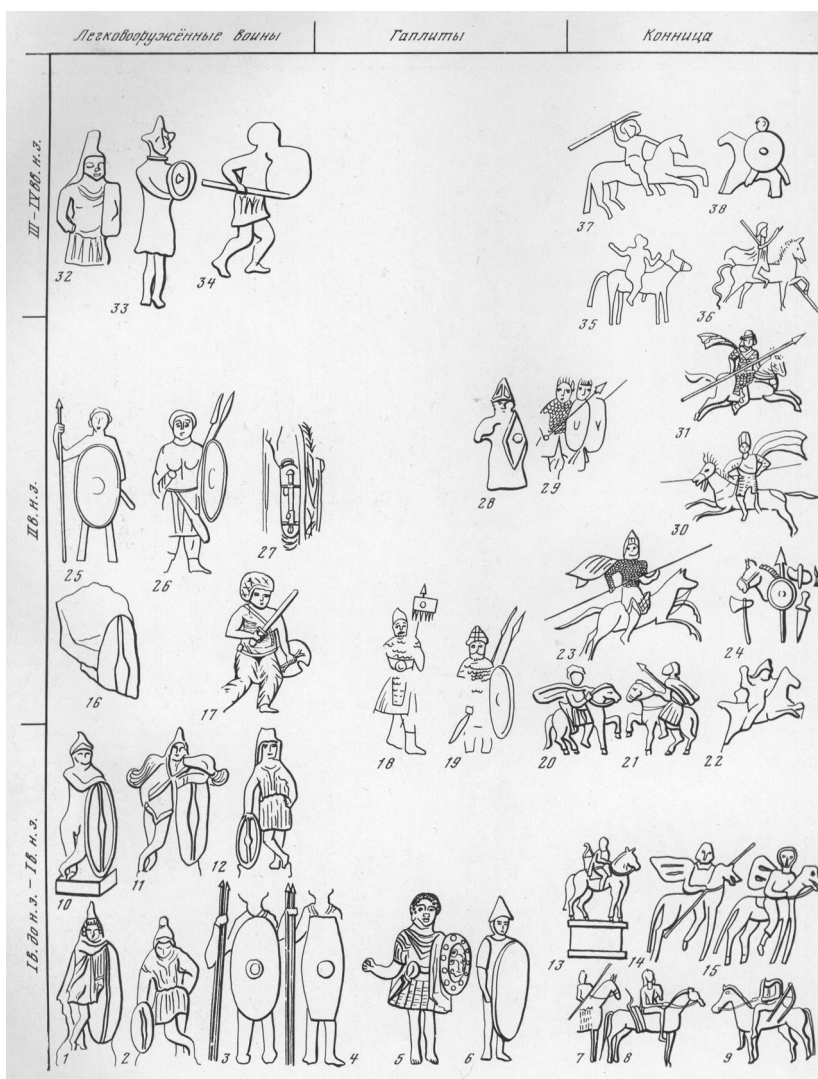 Легковооружённые воины
Гаплиты
Конница
III–IVвв. н.э.
32
33
34
37
38
35
36
31
IIв. н.э.
25
26
27
28
29
30
16
17
18
19
23
24
20
21
22
Iв. до н.э. – Iв. н.э.
10
11
12
13
14
15
1
2
3
4
5
6
7
8
9